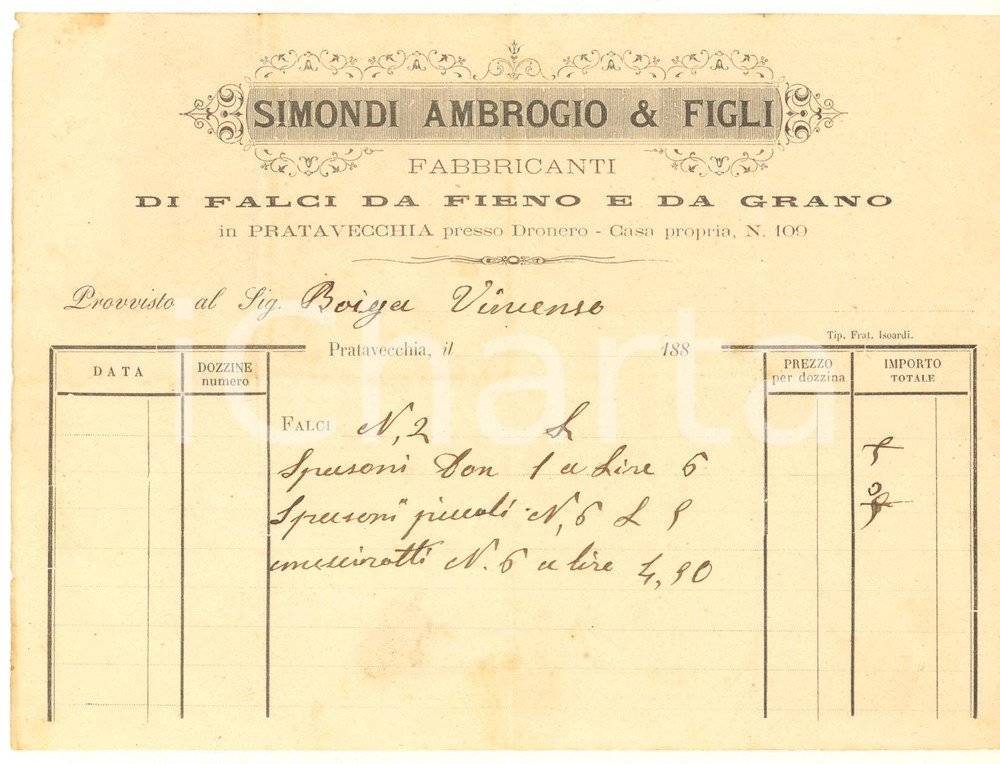 SIMONDI AMBROGIO & FIGLI
FABBRICANTI
DI FALCI DA FIENO E DA GRANO
in PRATAVECCHIA presso Dronero - Casa propria, N. 109
Provvisto al Sig. Boiga Vincenso
Tip. Frat. Isoardi.
Pratavecchia, il 188
DATA DOZZINE numero PREZZO per dozzina IMPORTO TOTALE
FALCI N, 2 L
Spersoni Don 1 a Lire 6
Spersoni piccoli N, 6 L 5
N. 6 a lire 4,50
iCharta